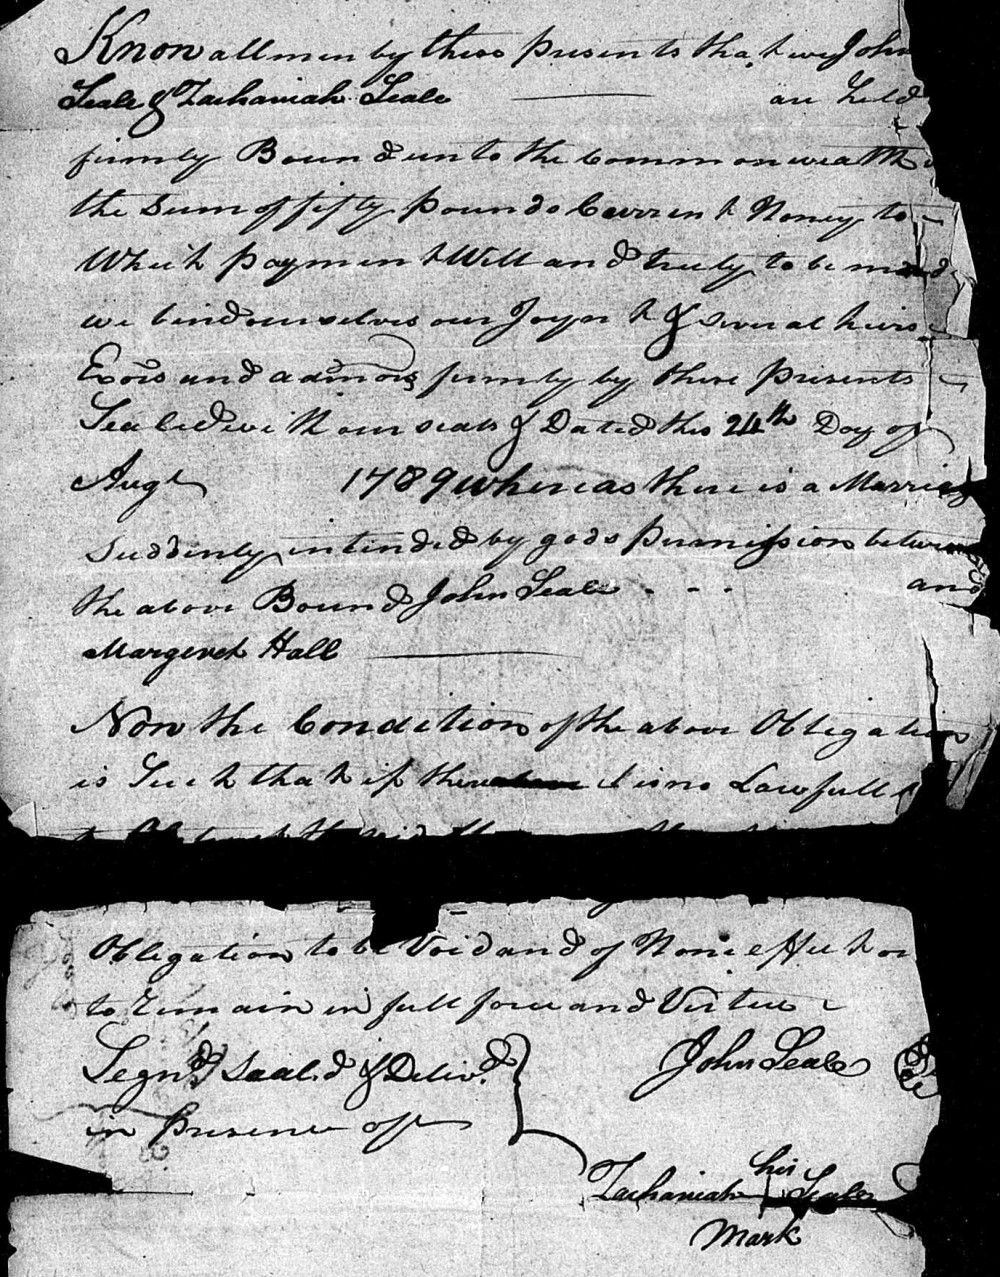 Know all men by these presents that we John
Seale & Zachariah Seale are held
firmly Bound unto the Commonwealth
the Sum of fifty pounds Current Money to
Which payment Well and truly to be made
we bind ourselves our Joynt & several heirs
Exors and admors firmly by these presents
Sealed with our seals & Dated this 24th Day of
Augt 1789 whereas there is a Marriag
Suddenly intended by gods permission between
the above Bound John Seale - - - and
Margeret Hall
Now the Condition of the above Obligation
is Such that if there is no Lawfull
to Obstruct the said
Obligation to be Void and of None effect or
to remain in full force and Virtue
Segnd Saald & Delivd John Seale
in presence off
Zachariah his Seale
Mark